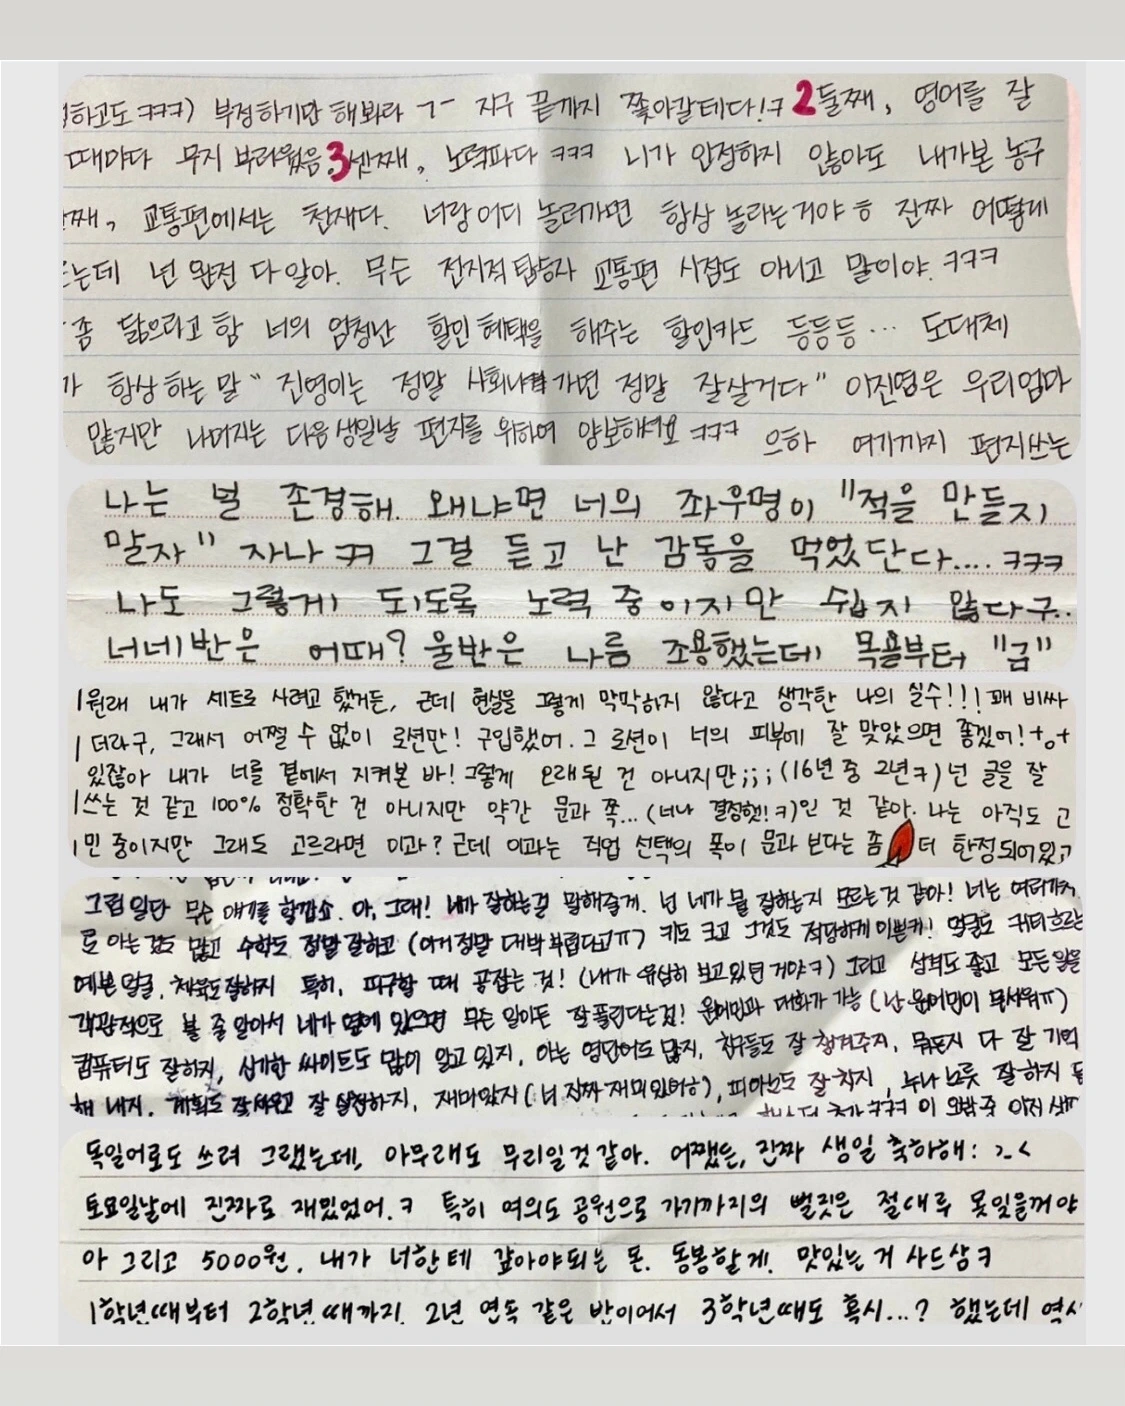 하고도 ㅋㅋㅋ) 부정하기만 해봐라 ㄱ- 지구 끝까지 쫓아갈테다!ㅋ 2 둘째, 영어를 잘
때마다 무지 부러웠음. 3 셋째, 노력파다 ㅋㅋㅋ 니가 인정하지 않아도 내가본 농구
째, 교통편에서는 천재다. 너랑 어디 놀러가면 항상 놀라는거야ㅎ 진짜 어떻게
는데 넌 완전 다 알아. 무슨 전지적 탑승자 교통편 시점도 아니고 말이야. ㅋㅋㅋ
좀 닮으라고 함 너의 엄청난 할인 혜택을 해주는 할인카드 등등등... 도대체
가 항상 하는 말 " 진영이는 정말 사회나가면 정말 잘살거다" 이진영은 우리엄마
많지만 나머지는 다음 생일날 편지를 위하여 양보해줘요 ㅋㅋㅋ 으하 여기까지 편지쓰는
나는 널 존경해. 왜냐면 너의 좌우명이 "적을 만들지
말자" 자나 ㅋㅋ 그걸 듣고 난 감동을 먹었단다.... ㅋㅋㅋ
나도 그렇게 되도록 노력 중이지만 쉽지 않다구..
너네반은 어때? 울반은 나름 조용했는데 목욜부터 "금"
원래 내가 세트로 사려고 했거든, 근데 현실을 그렇게 막막하지 않다고 생각한 나의 실수!!! 꽤 비싸
더라구, 그래서 어쩔 수 없이 로션만! 구입했어. 그 로션이 너의 피부에 잘 맞았으면 좋겠어!+.+
있잖아 내가 너를 곁에서 지켜본 바! 그렇게 오래된 건 아니지만;;; (16년 중 2년ㅋ) 넌 글을 잘
쓰는 것 같고 100% 정확한 건 아니지만 약간 문과 쪽... (너나 결정햇!ㅋ)인 것 같아. 나는 아직도 고
민 중이지만 그래도 고르라면 이과? 근데 이과는 직업 선택의 폭이 문과 보다는 좀 더 한정되어있고
그럼 일단 무슨 얘기를 할깝쇼. 아, 그래! 네가 잘하는걸 말해줄게. 넌 네가 뭘 잘하는지 모르는것 같아! 너는 여러가지
로 아는 것도 많고 수학도 정말 잘하고 (이거 정말 대박 부럽다고ㅠ) 키도 크고 그것도 적당하게 이쁜키! 얼굴도 귀티흐르는
예쁜 얼굴, 체육도 잘하지 특히, 피구할 때 공잡는 것! (내가 유심히 보고있던 거야ㅋ) 그리고 성격도 좋고 모든 일을
객관적으로 볼 줄 알아서 네가 옆에 있으면 무슨 일이든 잘 풀린다는것! 원어민과 대화가 가능 (난 원어민이 무서워ㅠ)
컴퓨터도 잘하지, 신기한 싸이트도 많이 알고 있지, 아는 영단어도 많지, 친구들도 잘 챙겨주지, 뭐든지 다 잘 기억
해 내지, 계획도 잘세우고 잘 실천하지, 재미있지 (너 진짜 재미있어ㅎ), 피아노도 잘 치지, 누나 노릇 잘하지
독일어로도 쓰려 그랬는데, 아무래도 무리일것같아. 어쨌든, 진짜 생일 축하해: >_<
토요일날에 진짜로 재밌었어.ㅋ 특히 여의도 공원으로 가기까지의 뻘짓은 절대루 못잊을꺼야
아 그리고 5000원. 내가 너한테 갚아야되는 돈. 동봉할게. 맛있는 거 사드삼ㅋ
1학년때부터 2학년때까지. 2년 연속 같은 반이어서 3학년때도 혹시...? 했는데 역시